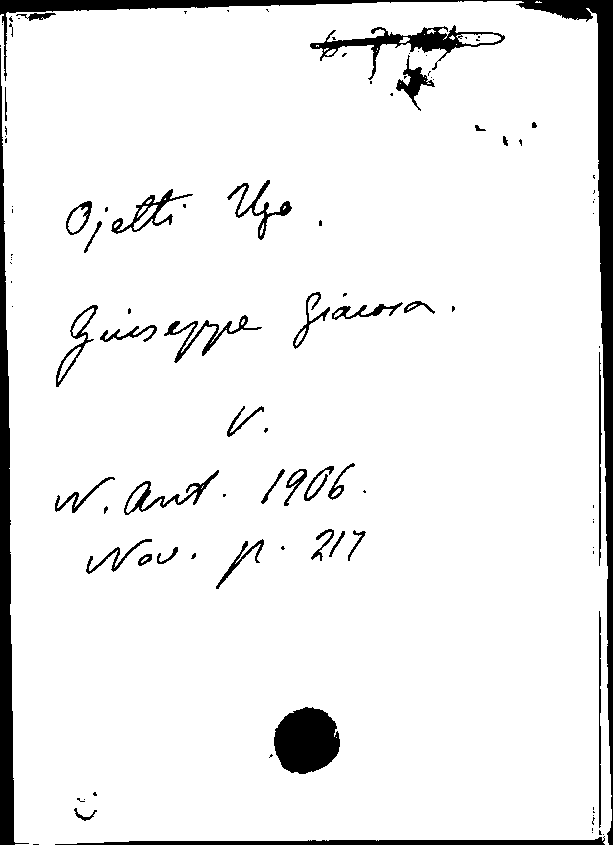 Ojetti Ugo.
Giuseppe Giacosa.
V.
N. Ant. 1906.
Nov. p. 217